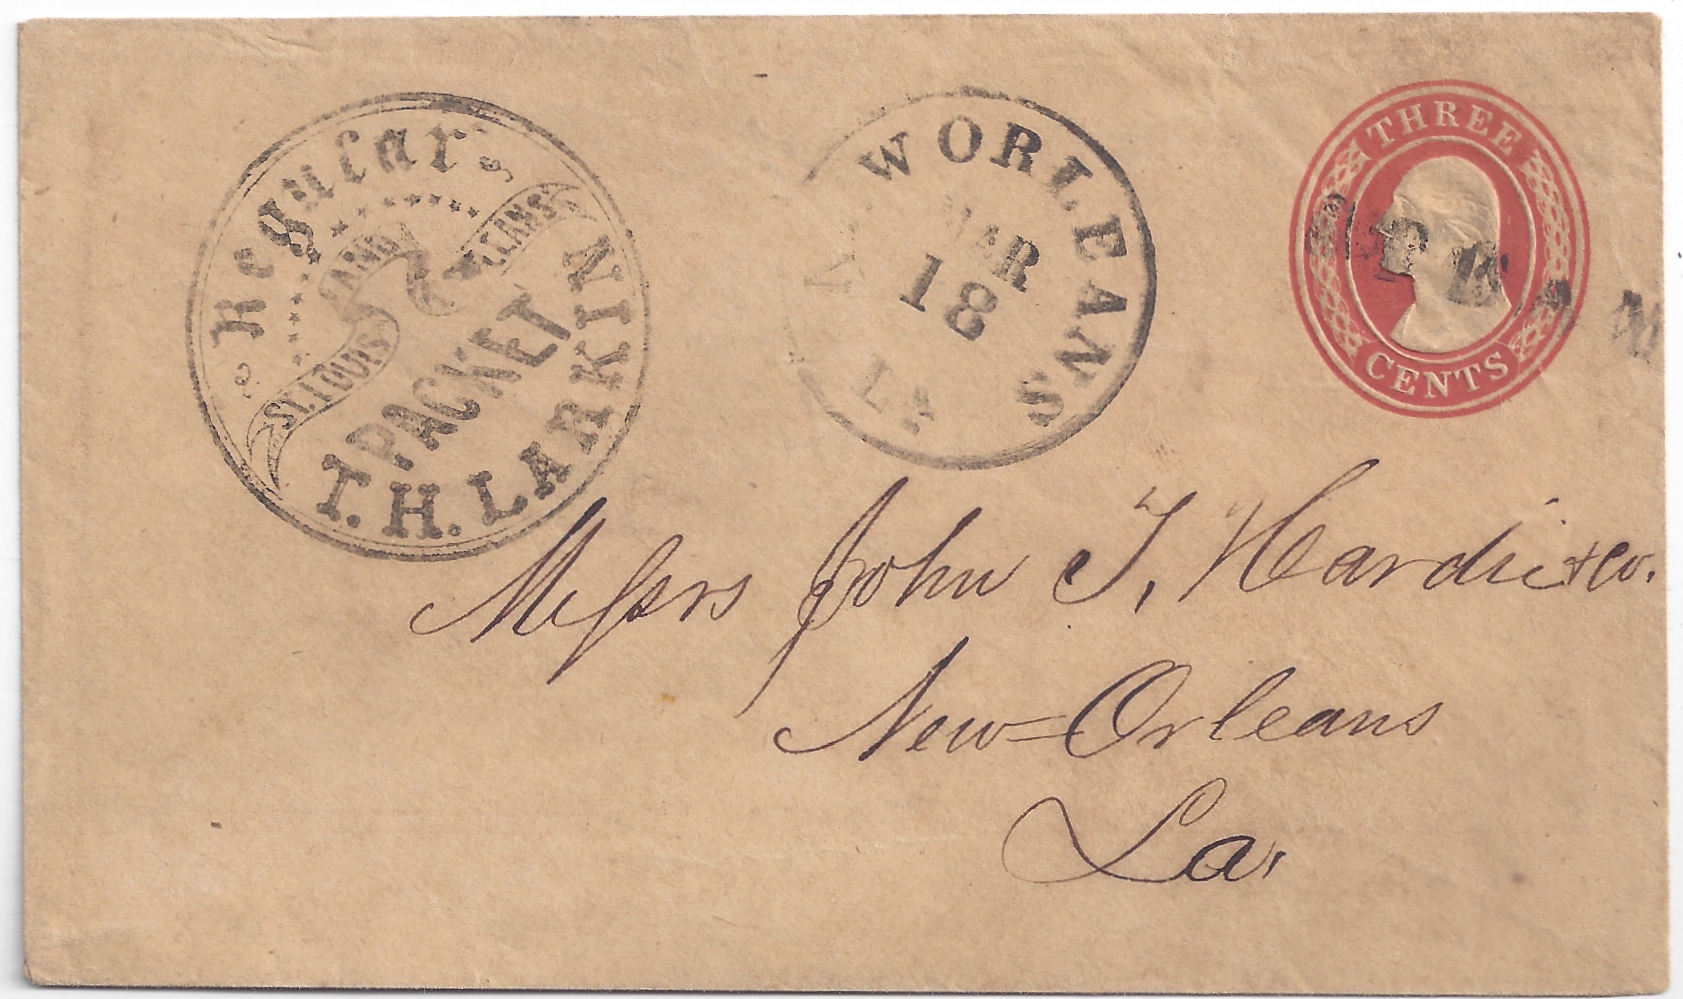 Regular
ST. LOUIS AND N. ORLEANS
PACKET
T. H. LARKIN
N. W ORLEANS
MAR
18
LA
THREE
CENTS
STEAM
Messrs John T. Hardie & Co.
New=Orleans
La.